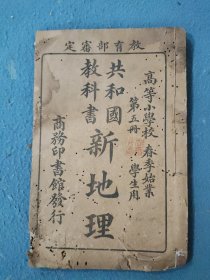 定審部育教
高等小學校 春季始業
第五冊 學生用
共和國
教科書
新地理
商務印書館發行